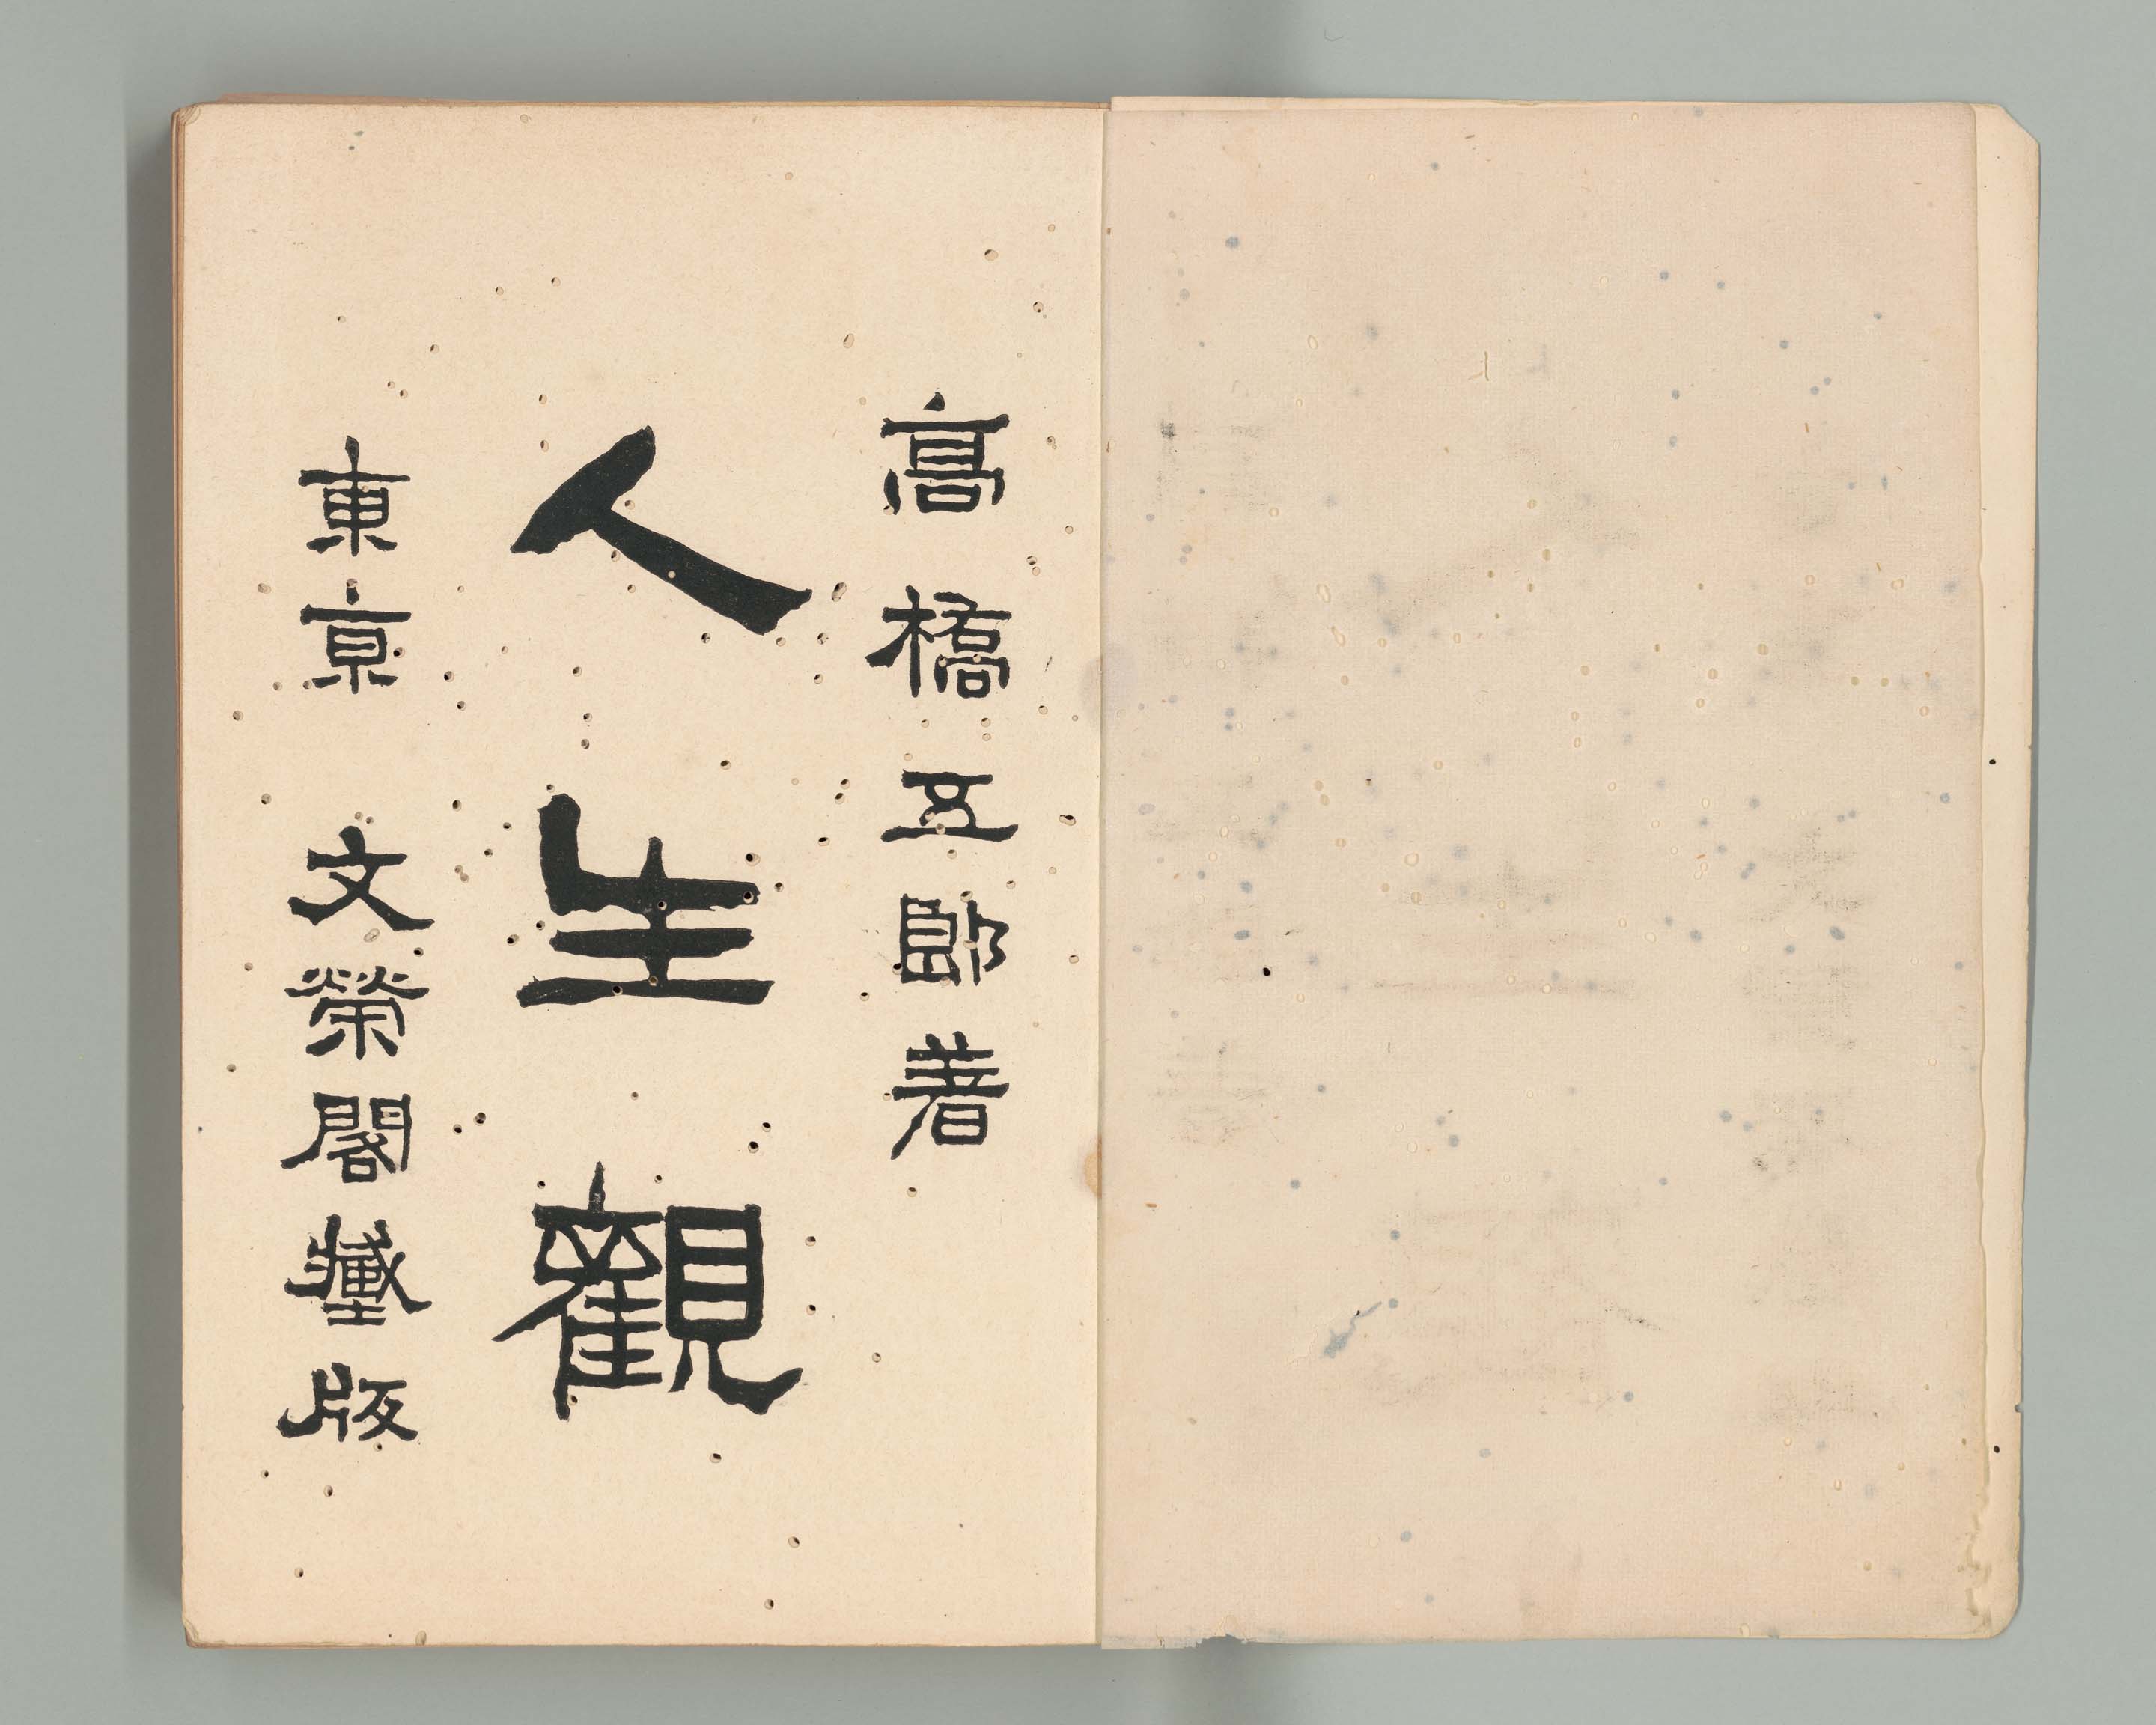 高橋五郎著
人生觀
東京 文榮閣藏版